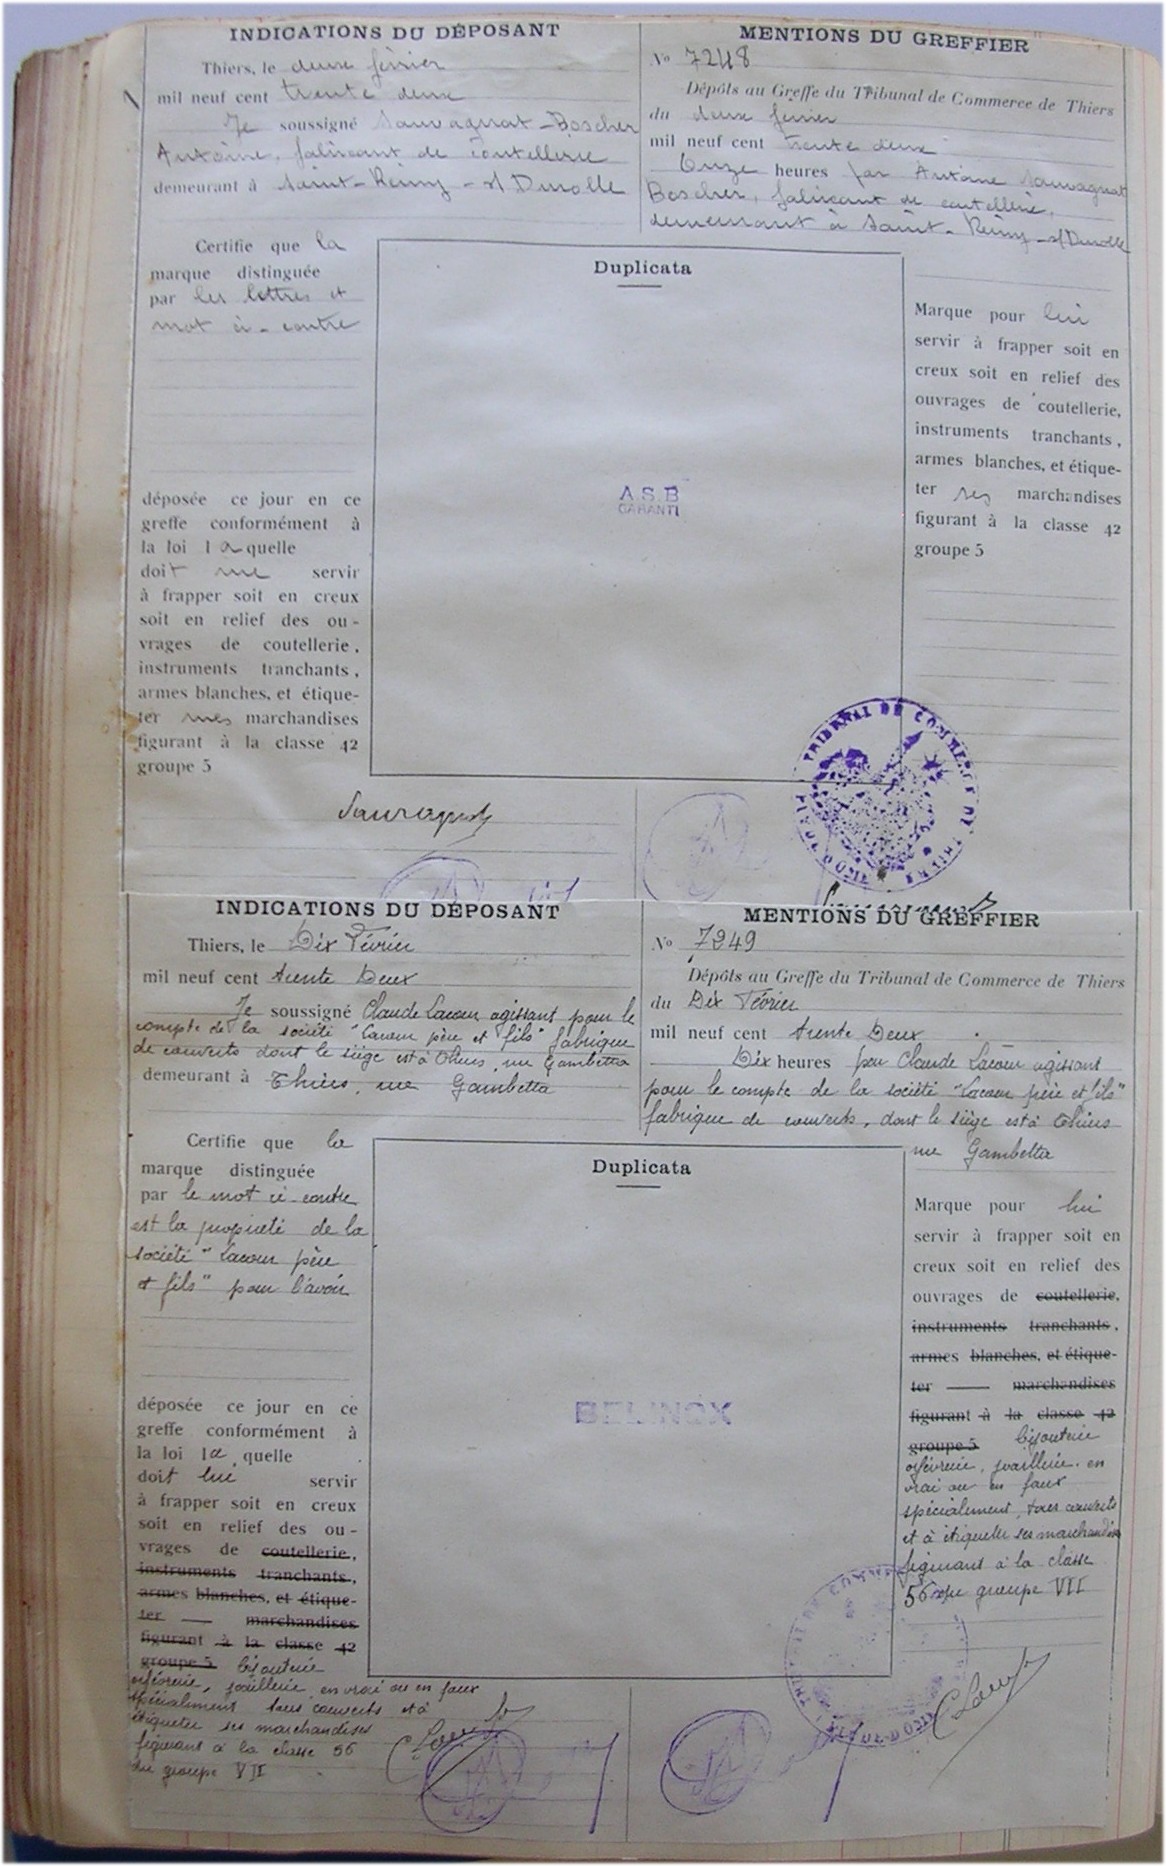 INDICATIONS DU DÉPOSANT
Thiers, le deux février
mil neuf cent trente deux
Je soussigné Sauvagnat-Boscher
Antoine, fabricant de coutellerie
demeurant à Saint-Remy-s/Durolle
Certifie que la
marque distinguée
par les lettres et
mot ci-contre
déposée ce jour en ce
greffe conformément à
la loi laquelle
doit me servir
à frapper soit en creux
soit en relief des ou-
vrages de coutellerie,
instruments tranchants,
armes blanches, et étique-
ter mes marchandises
figurant à la classe 42
groupe 5
Sauvagnat
MENTIONS DU GREFFIER
No 7248
Dépôts au Greffe du Tribunal de Commerce de Thiers
du deux février
mil neuf cent trente deux
Onze heures par Antoine Sauvagnat
Boscher, fabricant de coutellerie,
demeurant à Saint-Remy-s/Durolle
Duplicata
A.S.B
GARANTI
Marque pour lui
servir à frapper soit en
creux soit en relief des
ouvrages de coutellerie,
instruments tranchants,
armes blanches, et étique-
ter ses marchandises
figurant à la classe 42
groupe 5
TRIBUNAL DE COMMERCE DE THIERS
PUY-DE-DÔME
INDICATIONS DU DÉPOSANT
Thiers, le Dix Février
mil neuf cent trente Deux
Je soussigné Claude Lacour agissant pour le
compte de la société "Lacour père et fils" fabrique
de couverts dont le siège est à Thiers, rue Gambetta
demeurant à Thiers, rue Gambetta
Certifie que la
marque distinguée
par le mot ci-contre
est la propriété de la
société "Lacour père
et fils" pour l'avoir
déposée ce jour en ce
greffe conformément à
la loi laquelle
doit lui servir
à frapper soit en creux
soit en relief des ou-
vrages de coutellerie,
instruments tranchants,
armes blanches, et étique-
ter marchandises
figurant à la classe 42
groupe 5 bijouterie
orfèvrerie, joaillerie en vrai ou en faux
spécialement tous couverts et à
étiqueter ses marchandises
figurant à la classe 56
du groupe VII
C Lacour
MENTIONS DU GREFFIER
No 7249
Dépôts au Greffe du Tribunal de Commerce de Thiers
du Dix Février
mil neuf cent trente Deux
Dix heures par Claude Lacour agissant
pour le compte de la société "Lacour père et fils"
fabrique de couverts, dont le siège est à Thiers
rue Gambetta
Duplicata
BELINOX
Marque pour lui
servir à frapper soit en
creux soit en relief des
ouvrages de coutellerie,
instruments tranchants,
armes blanches, et étique-
ter marchandises
figurant à la classe 42
groupe 5 bijouterie
orfèvrerie, joaillerie en
vrai ou en faux
spécialement, tous couverts
et à étiqueter ses marchandises
figurant à la classe
56 du groupe VII
C Lacour